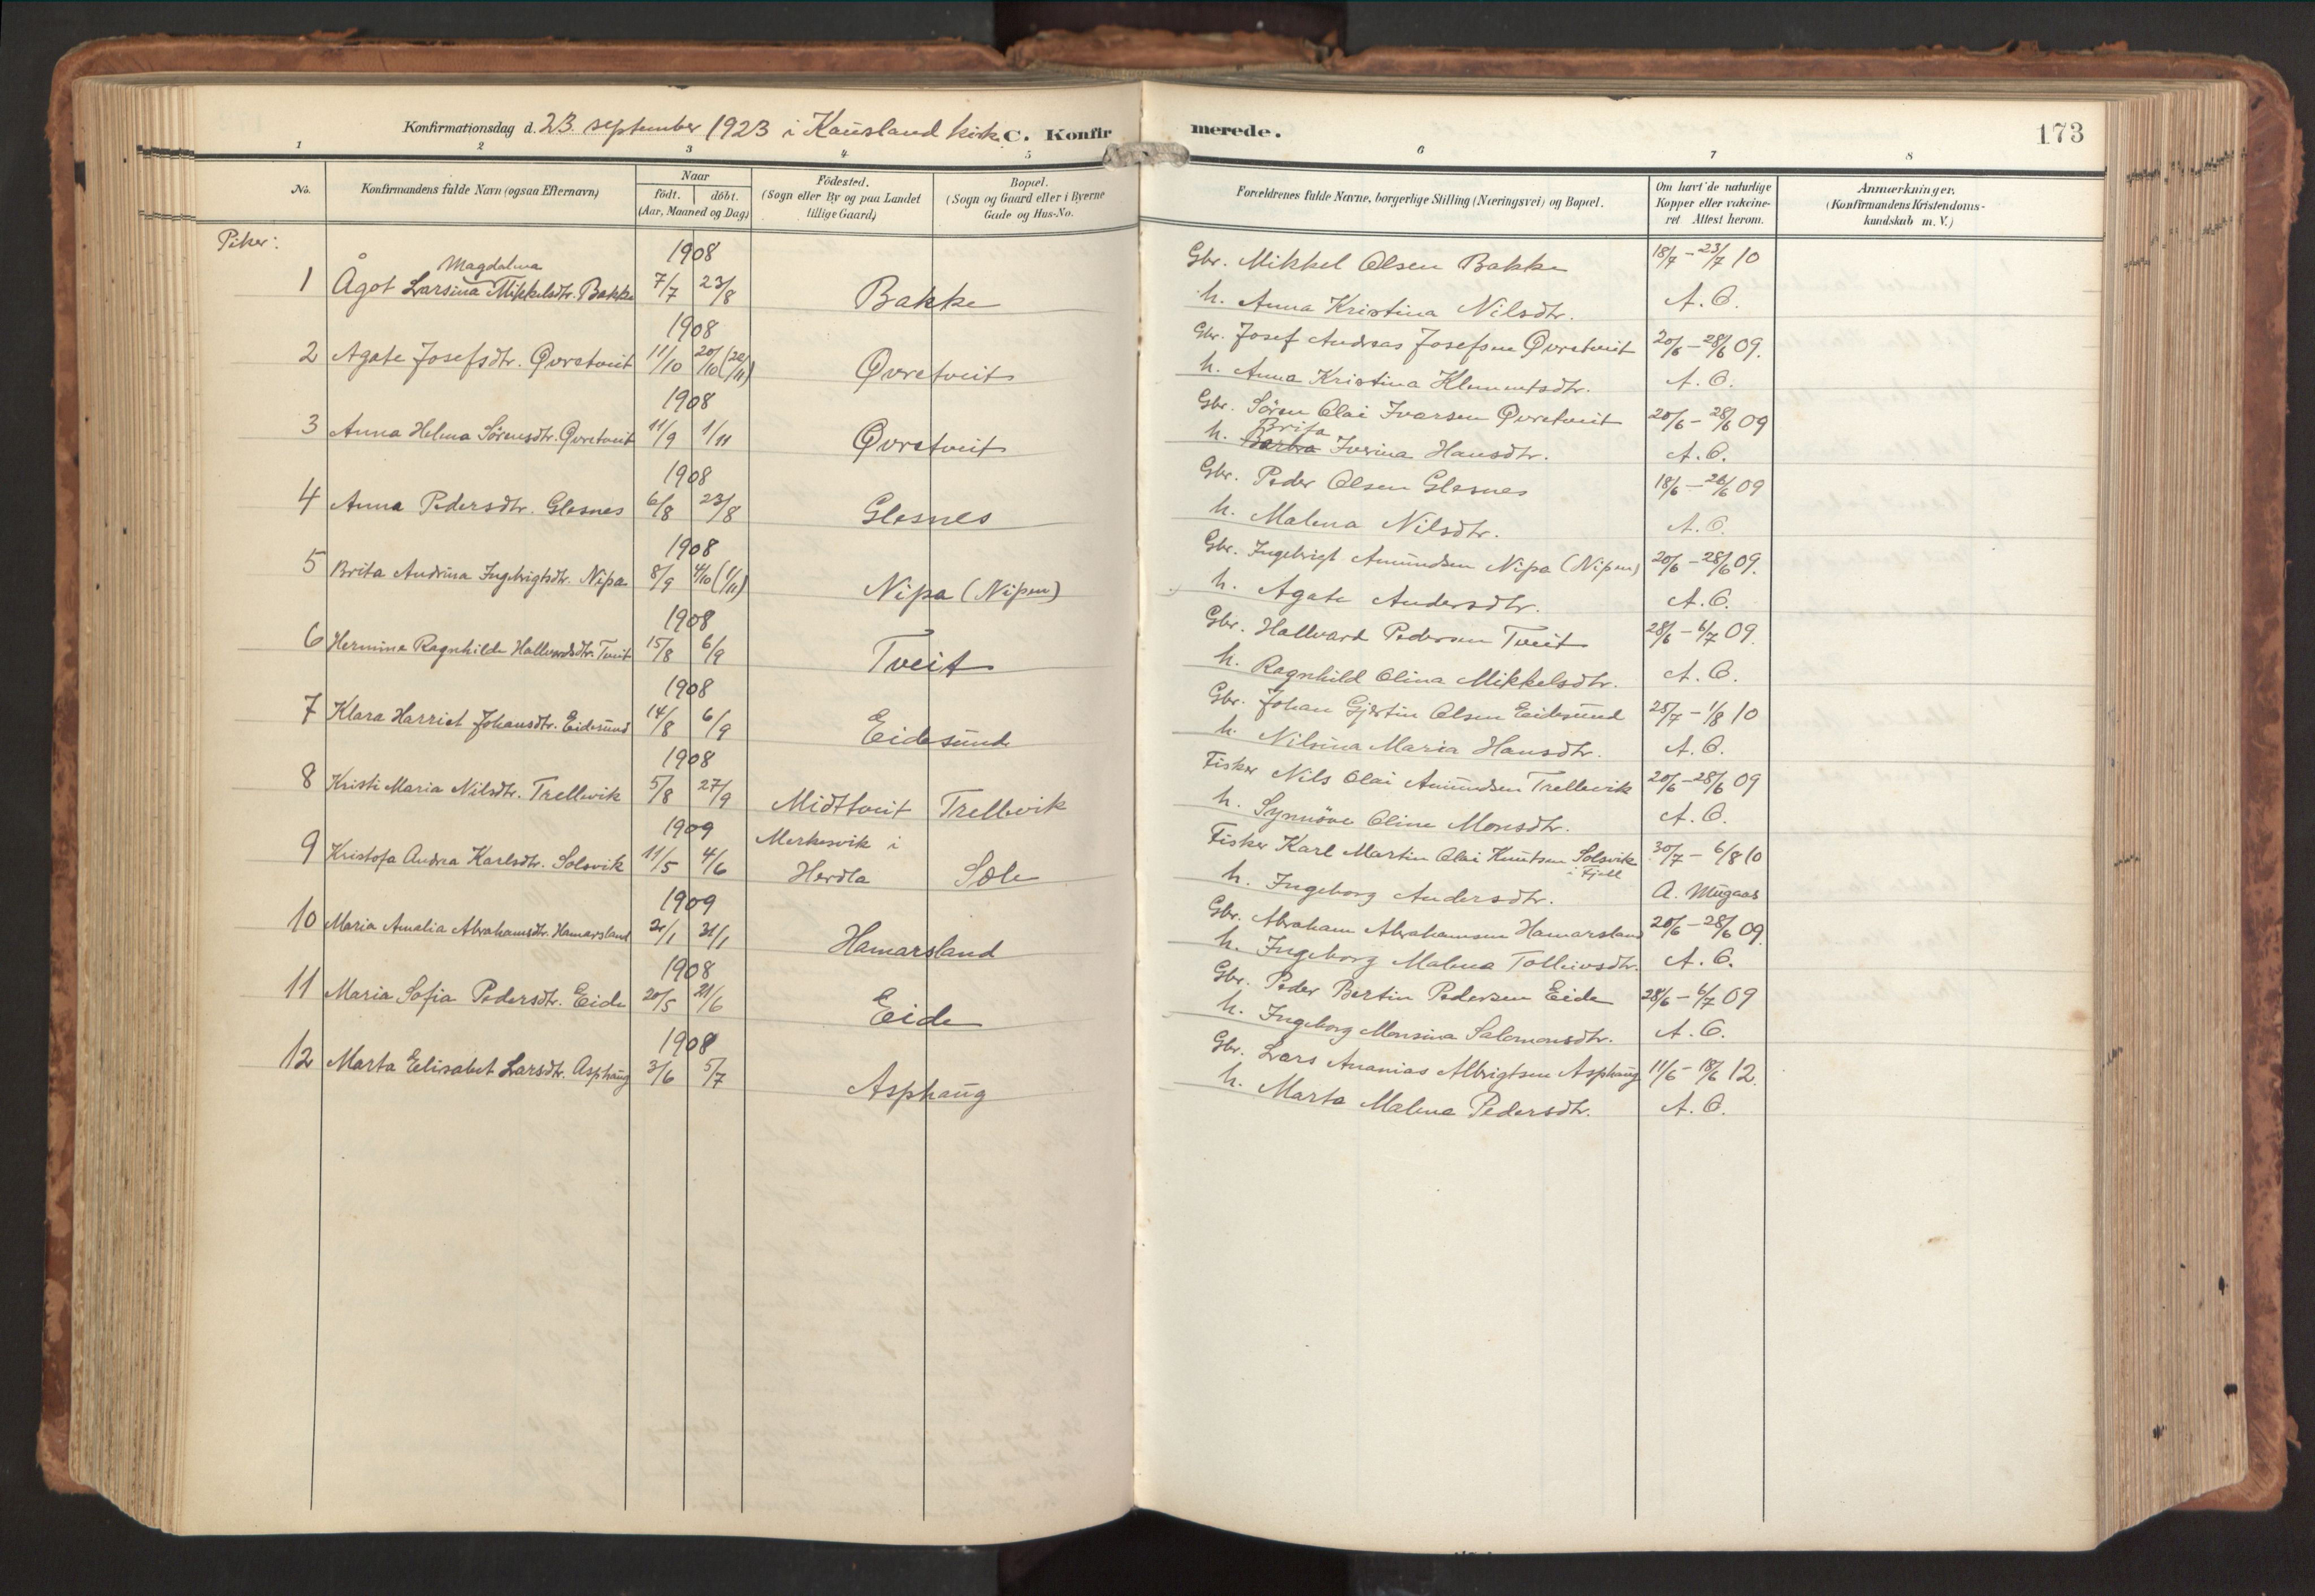 Konfirmationsdag d. 23. september 1923 i Kausland kirke C. Konfirmerede. 173
1 2 3 4 5 6 7 8
No. Konfirmandens fulde Navn (ogsaa Efternavn) Naar født. døbt. (Aar, Maaned og Dag) Fødested. (Sogn eller By og paa Landet tillige Gaard) Bopæl. (Sogn og Gaard eller i Byerne Gade og Hus-No. Forældrenes fulde Navne, borgerlige Stilling (Næringsvei) og Bopæl. Om havt de naturlige Kopper eller vakcineret Attest herom. Anmærkninger. (Konfirmandens Kristendomskundskab m. V.)
Piker:
1 Ågot Larsina Magdalena Mikkelsdtr. Bakke 1908 7/7 23/8 Bakke Gbr. Mikkel Olsen Bakke 18/7 - 23/7 10
h. Anna Kristina Nilsdtr. A. O.
2 Agate Josefsdtr. Øvretveit 1908 11/10 20/10 (22/11) Øvretveit Gbr. Josef Andreas Josefsen Øvretveit 20/6 - 28/6 09.
h. Anna Kristina Klementsdtr. A. O.
3 Anna Helena Sørensdtr. Øvretveit 1908 11/9 1/11 Øvretveit Gbr. Søren Olai Ivarsen Øvretveit 20/6 - 28/6 09
h. Barbra Brita Iverina Hansdtr. A. O.
4 Anna Pedersdtr. Glesnes 1908 6/8 23/8 Glesnes Gbr. Peder Olsen Glesnes 18/6 - 26/6 09
h. Malena Nilsdtr. A. O.
5 Brita Andrina Ingebrigtsdtr. Nipa 1908 8/9 4/10 (1/11) Nipa (Nipen) Gbr. Ingebrigt Amundsen Nipa (Nipen) 20/6 - 28/6 09.
h. Agate Andersdtr. A. O.
6 Hermine Ragnhilde Hallvardsdtr. Tveit 1908 15/8 6/9 Tveit Gbr. Hallvard Pedersen Tveit 28/6 - 6/7 09.
h. Ragnhild Olina Mikkelsdtr. A. O.
7 Klara Harriet Johansdtr. Eidesund 1908 14/8 6/9 Eidesund Gbr. Johan Gjertin Olsen Eidesund 25/7 - 1/8 10
h. Nilsina Maria Hansdtr. A. O.
8 Kristi Maria Nilsdtr. Trellevik 1908 5/8 27/9 Midttveit Trellevik Fisker Nils Olai Amundsen Trellevik 20/6 - 28/6 09
h. Synnøve Oline Monsdtr. A. O.
9 Kristofa Andrea Karlsdtr. Solsvik 1909 11/5 4/6 Merkesvik i Herdla Sole Fisker Karl Martin Olai Knutsen Solsvik i Fjell 30/7 - 6/8 10
h. Ingeborg Andersdtr. A. Mugaas
10 Maria Amalia Abrahamsdtr. Hamarsland 1909 21/1 31/1 Hamarsland Gbr. Abraham Abrahamsen Hamarsland 20/6 - 28/6 09.
h. Ingeborg Malena Tolleivsdtr. A. O.
11 Maria Sofia Pedersdtr. Eide 1908 20/5 21/6 Eide Gbr. Peder Bertin Pedersen Eide 28/6 - 6/7 09
h. Ingeborg Monsina Salomonsdtr. A. O.
12 Marta Elisabet Larsdtr. Asphaug 1908 3/6 5/7 Asphaug Gbr. Lars Ananias Albrigtsen Asphaug 11/6 - 18/6 12.
h. Marta Malena Pedersdtr. A. O.